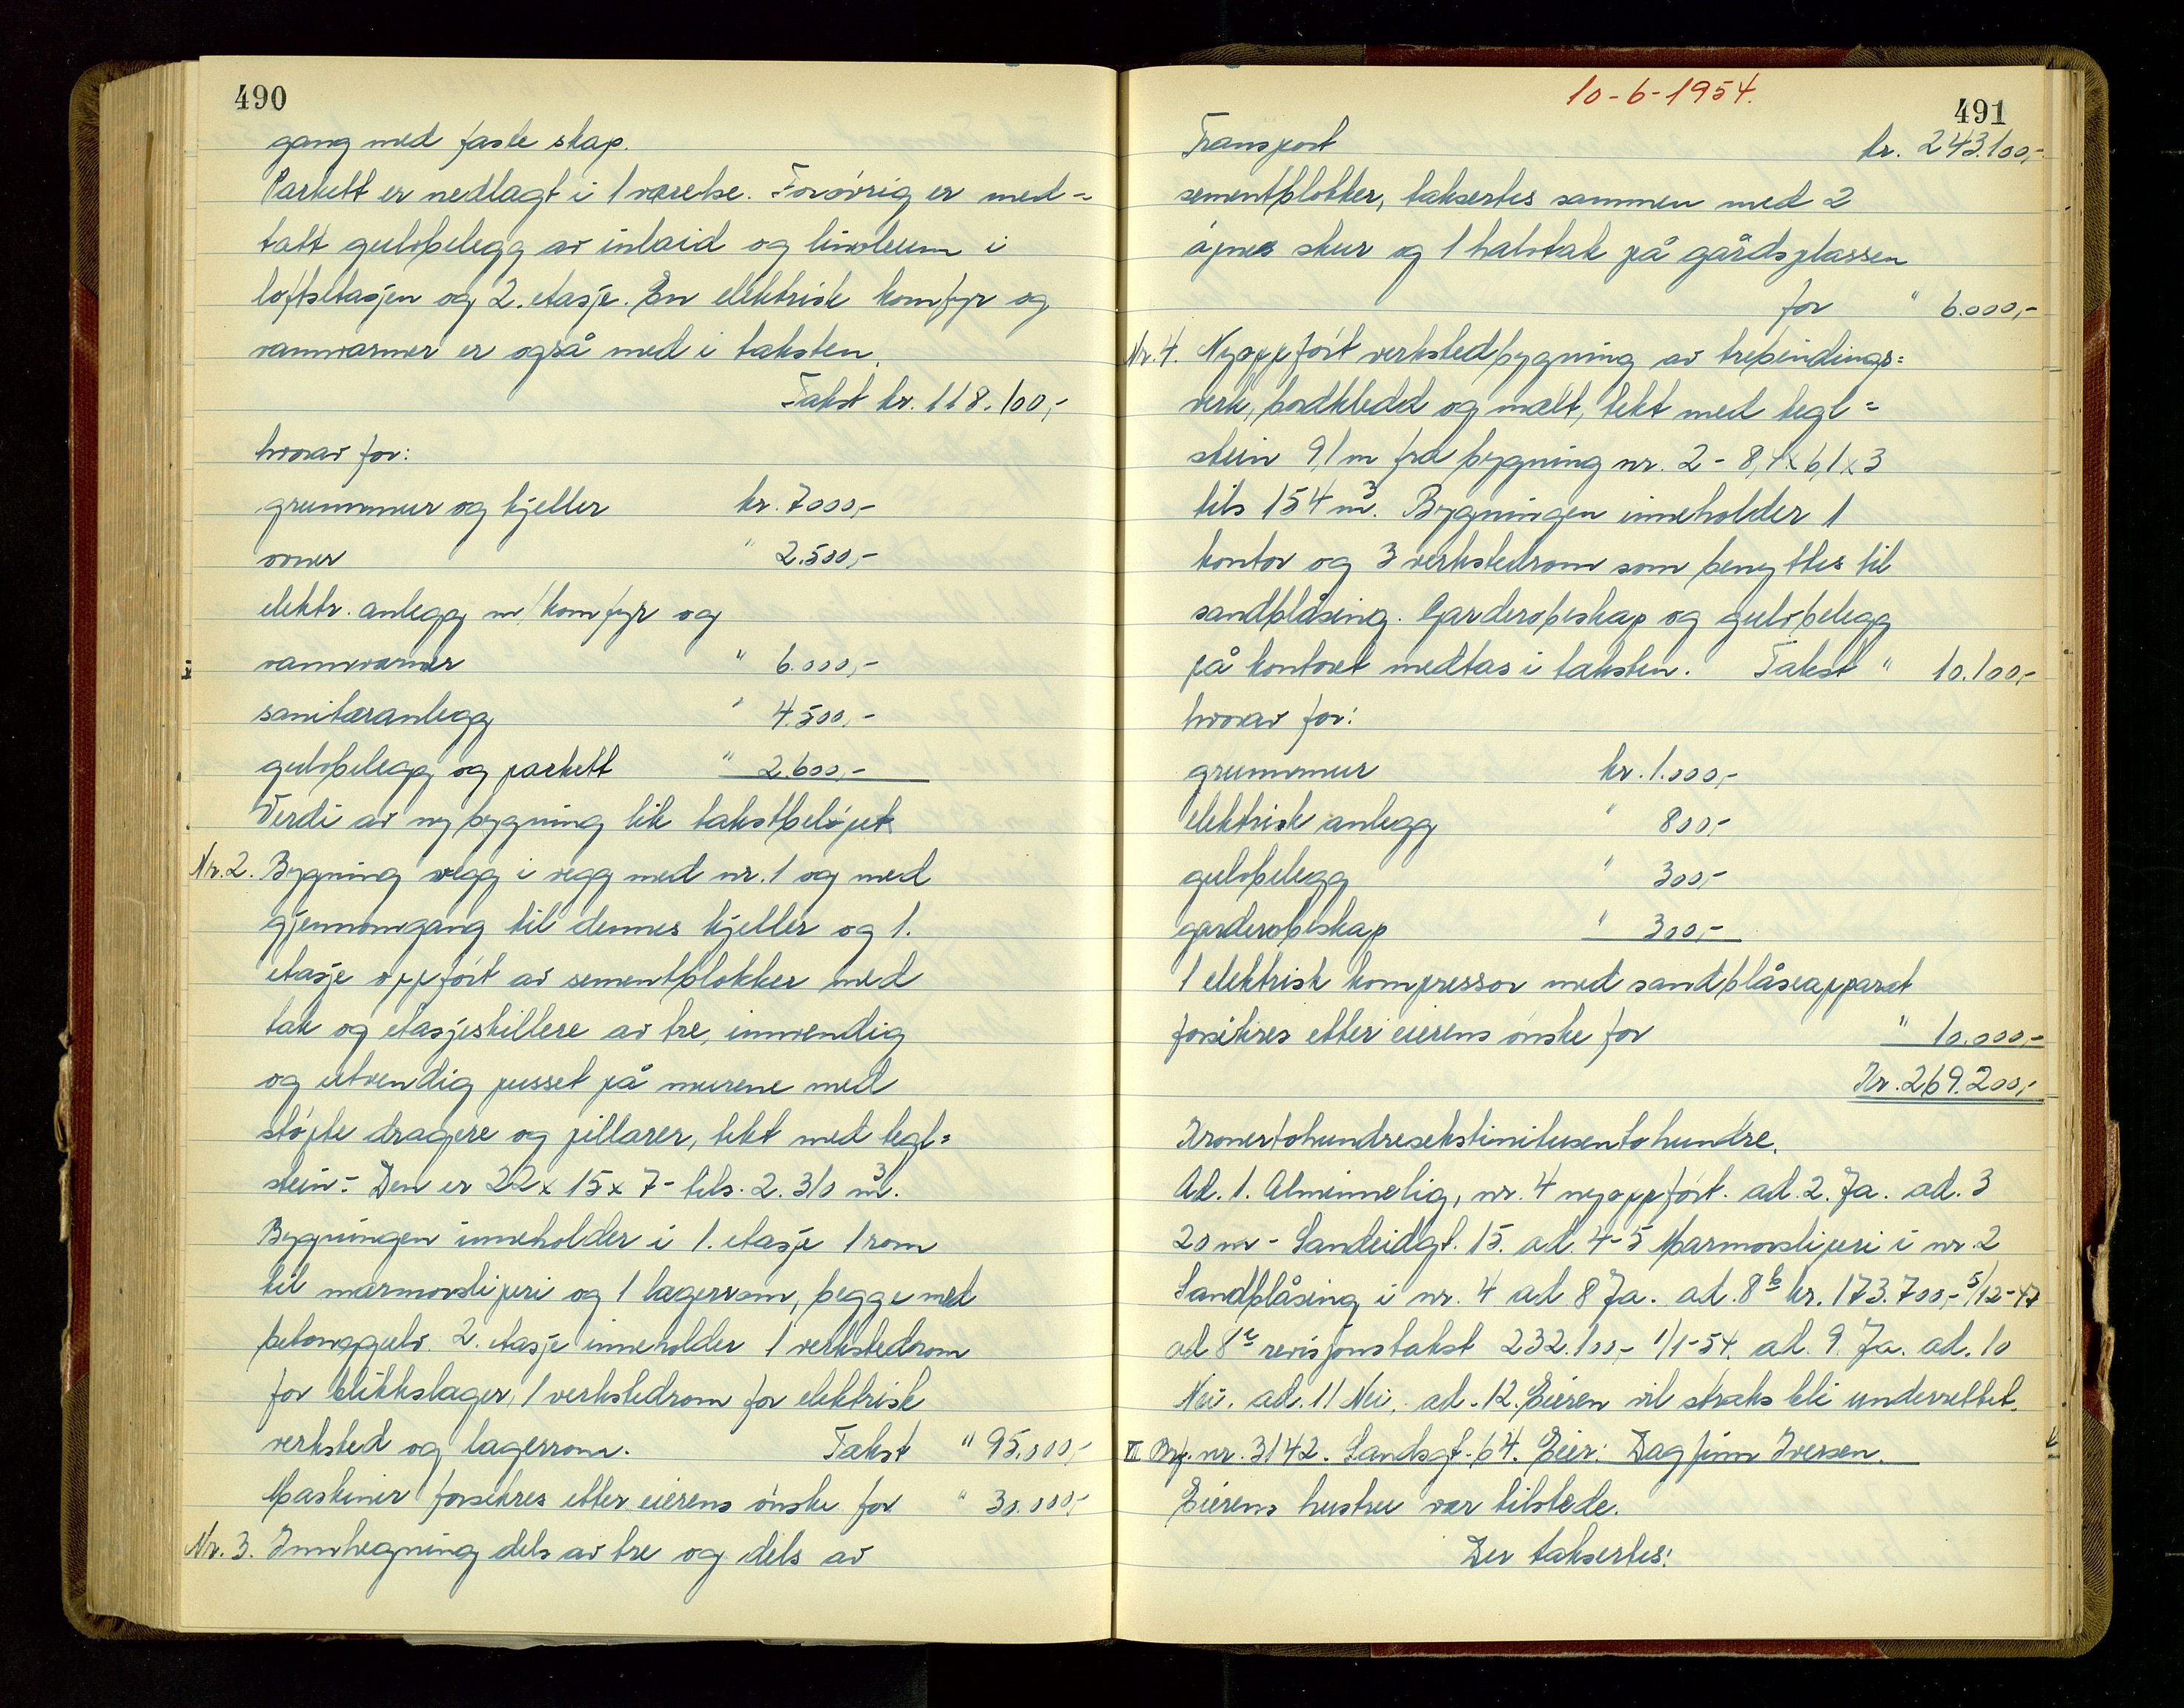 490
gang med faste skap.
Parkett er nedlagt i 1 værelse. Forøvrig er med-
tatt gulvbelegg av inlaid og linoleum i
loftsetasjen og 2. etasje. En elektrisk komfyr og
vannvarmer er også med i taksten.
Takst kr. 118.100,-
hvorav for:
grunnmur og kjeller kr. 7000,-
ovner " 2.500,-
elektr. anlegg m/komfyr og
vannvarmer " 6.000,-
sanitæranlegg " 4.500,-
gulvbelegg og parkett " 2.600,-
Verdi av ny bygning lik takstbeløpet
Nr. 2. Bygning vegg i vegg med nr. 1 og med
gjennomgang til dennes kjeller og 1.
etasje oppført av sementblokker med
tak og etasjeskillere av tre, innvendig
og utvendig pusset på murene med
støpte dragere og pillarer, tekt med tegl=
stein - Den er 22 x 15 x 7 - tils. 2.310 m³.
Bygningen inneholder i 1. etasje 1 rom
til marmorsliperi og 1 lagerrom, begge med
betonggulv. 2. etasje inneholder 1 verkstedrom
for blikkslager, 1 verkstedrom for elektrisk
verksted og lagerrom. Takst " 95.000,-
Maskiner forsikres etter eierens ønske for " 30.000,-
Nr. 3. Innhegning dels av tre og dels av
10-6-1954.
491
Transport kr. 243.100,-
sementblokker, taksertes sammen med 2
åpnes skur og 1 halvtak på gårdsplassen
for " 6.000,-
Nr. 4. Nyoppført verkstedbygning av trebindings=
verk, bordkledd og malt, tekt med tegl=
stein 9,1 m fra bygning nr. 2 - 8,4 x 6,1 x 3
tils 154 m³. Bygningen inneholder 1
kontor og 3 verkstedrom som benyttes til
sandblåsing. Garderobeskap og gulvbelegg
på kontoret medtas i taksten. Takst " 10.100,-
hvorav for:
grunnmur kr. 1.000,-
elektrisk anlegg " 800,-
gulvbelegg " 300,-
garderobeskap " 300,-
1 elektrisk kompressor med sandblåseapparat
forsikres etter eierens ønske for " 10.000,-
Kr. 269.200,-
Kronertohundresekstinitusentohundre.
Ad. 1. Alminnelig, nr. 4 nyoppført. ad. 2. Ja. ad. 3
20 m - Sandeidgt. 15. ad. 4-5 Marmorsliperi i nr. 2
Sandblåsing i nr. 4 ad 8 Ja. ad. 8b kr. 173.700,- 5/12-47
ad 8c revisjonstakst 232.100,- 1/1-54. ad. 9. Ja. ad. 10
Nei. ad. 11 Nei. ad. 12. Eieren vil straks bli underrettet.
VI Brf. nr. 3142. Sandsgt. 64. Eier: Dagfinn Iversen.
Eierens hustru var tilstede.
Der taksertes: